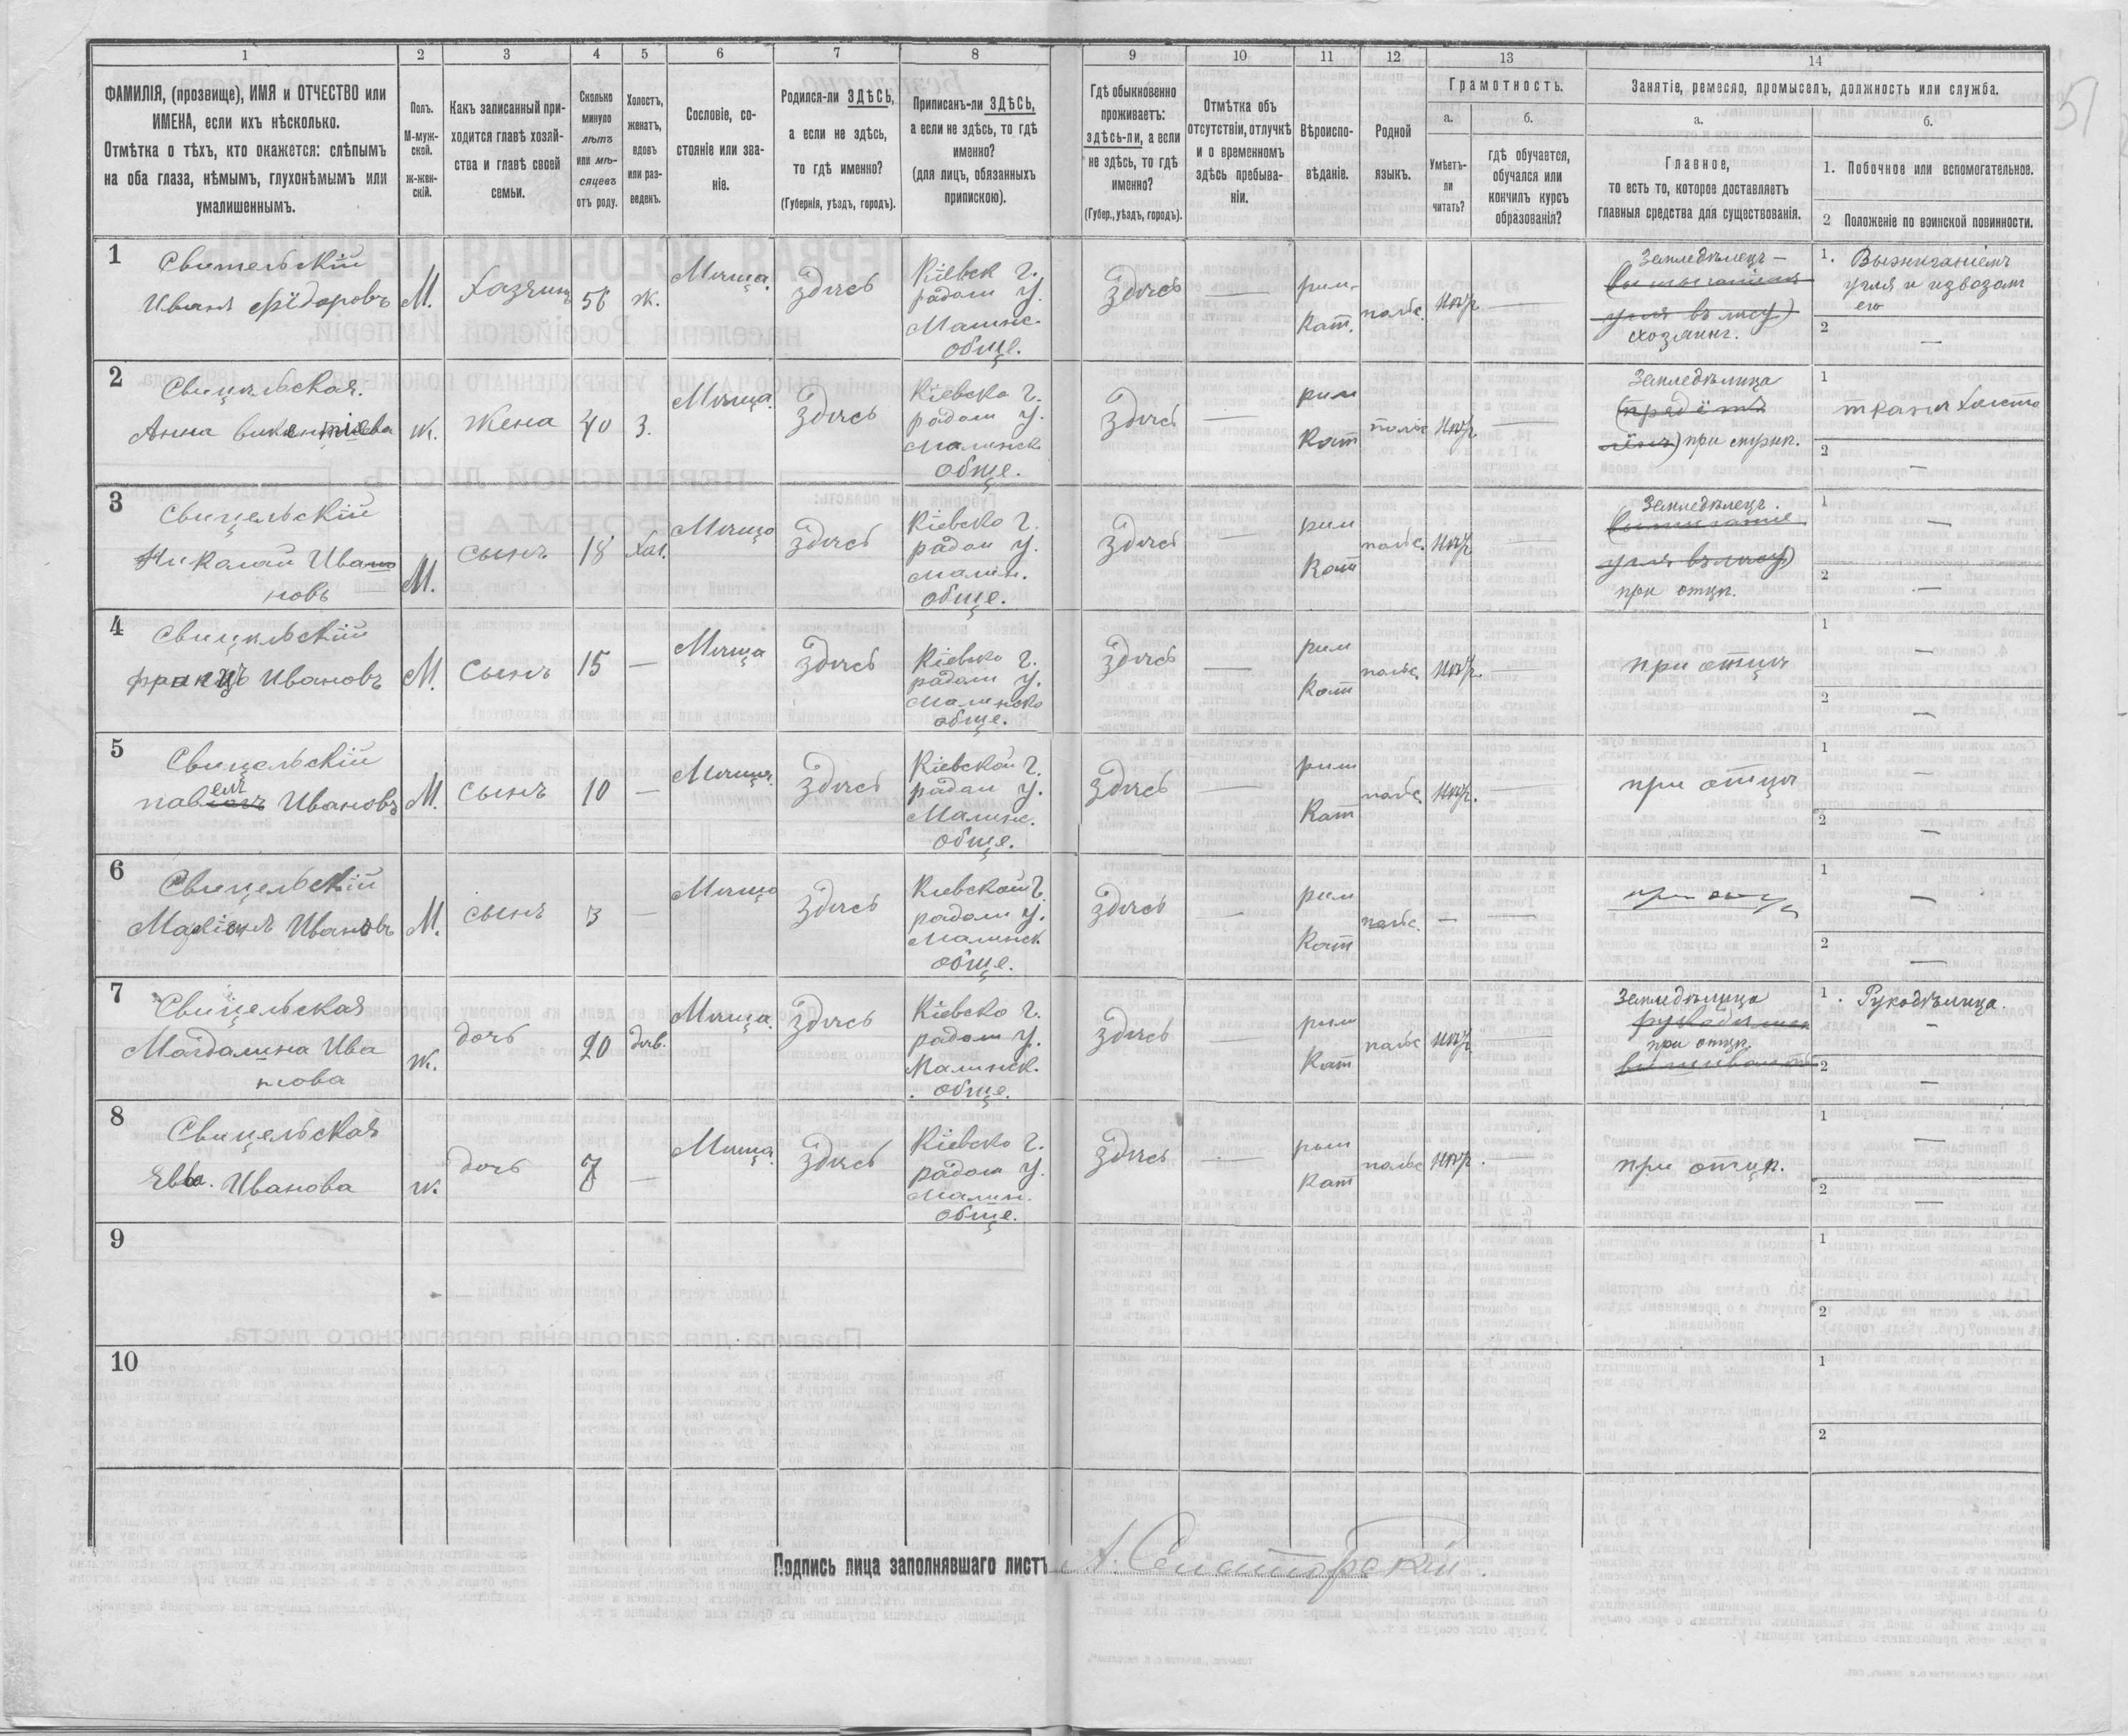 1 2 3 4 5 6 7 8 9 10 11 12 13 14
ФАМИЛІЯ, (прозвище), ИМЯ и ОТЧЕСТВО или
ИМЕНА, если ихъ нѣсколько.
Отмѣтка о тѣхъ, кто окажется: слѣпымъ
на оба глаза, нѣмымъ, глухонѣмымъ или
умалишеннымъ.
Полъ.
М-муж-
ской.
ж-жен-
скій.
Какъ записанный при-
ходится главѣ хозяй-
ства и главѣ своей
семьи.
Сколько
минуло
лѣтъ
или мѣ-
сяцевъ
отъ роду.
Холостъ,
женатъ,
вдовъ
или раз-
веденъ.
Сословіе, со-
стояніе или зва-
ніе.
Родился-ли ЗДѢСЬ,
а если не здѣсь,
то гдѣ именно?
(Губернія, уѣздъ, городъ).
Приписанъ-ли ЗДѢСЬ,
а если не здѣсь, то гдѣ
именно?
(для лицъ, обязанныхъ
припискою).
Гдѣ обыкновенно
проживаетъ:
здѣсь-ли, а если
не здѣсь, то гдѣ
именно?
(Губер., уѣздъ, городъ).
Отмѣтка объ
отсутствіи, отлучкѣ
и о временномъ
здѣсь пребыва-
ніи.
Вѣроиспо-
вѣданіе.
Родной
языкъ.
Грамотность.
а.
Умѣетъ-
ли
читать?
б.
гдѣ обучается,
обучался или
кончилъ курсъ
образованія?
Занятіе, ремесло, промыселъ, должность или служба.
а.
Главное,
то есть то, которое доставляетъ
главныя средства для существованія.
б.
1. Побочное или вспомогательное.
2 Положеніе по воинской повинности.
51
1
Свительскій
Иванъ Фёдоровъ
М.
Хазяинъ
56
ж.
Мѣща.
Здѣсь
Кіевск г.
радом у.
Малинс.
обще.
Здѣсь
—
рим.
Кат.
польс.
нѣт
—
Земледѣлецъ —
угля въ лѣсу)
хозяинъ.
1. Выжиганіемъ
угля и извозом
его
2
—
2
Свицельская.
Анна Викентіева
ж.
Жена
40
З.
Мѣща.
Здѣсь
Кіевско г.
радом у.
Малинск
обще.
Здѣсь
—
рим
Кат
польс
нѣт
—
Земледѣлица
при мужѣ.
1
ткания Холста
2
—
3
Свицельскій
Николай Ивано
новъ
М.
сынъ
18
Хол.
Мѣща
Здѣсь
Кіевско г.
радом у.
Малин.
обще.
Здѣсь
—
рим
Кат
польс.
нѣт
—
Земледѣлецъ.
угля въ лѣсу)
при отцѣ.
1
—
2
—
4
Свицельскій
францъ Ивановъ
М.
Сынъ
15
—
Мѣща
Здѣсь
Кіевско г.
радом у.
Малинско
обще.
Здѣсь
—
рим
Кат
польс.
нѣт.
—
при отцѣ
1
—
2
—
5
Свицельскій
павелъ Ивановъ
М.
сынъ
10
—
Мѣща.
Здѣсь
Кіевской г.
радом у.
Малинс.
обще.
Здѣсь
—
рим
Кат
польс.
нѣт.
—
при отцѣ
1
—
2
—
6
Свицельскій
Маріянъ Ивановъ
М.
сынъ
3
—
Мѣща
Здѣсь
Кіевской г.
радом у.
Малинск
обще.
Здѣсь
—
рим
Кат
польс.
—
—
при отцѣ
1
—
2
—
7
Свицельская
Магдалина Ива
нова
ж.
дочь
20
дѣв.
Мѣща.
Здѣсь
Кіевско г.
радом у.
Малинск.
обще.
Здѣсь
—
рим
Кат
польс
нѣт
—
Земледѣлица
при отцѣ.
1. Рукодѣлица.
—
2
—
8
Свицельская
Ева. Иванова
ж.
дочь
7
—
Мѣща.
Здѣсь
Кіевско г.
радом у.
Малин.
обще.
Здѣсь
—
рим
Кат
польс
нѣт.
—
при отцѣ.
1
—
2
—
9
1
2
10
1
2
Подпись лица заполнявшаго листъ